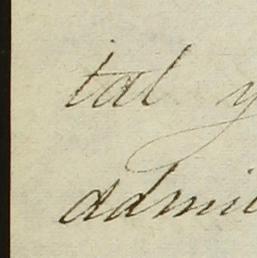 tal y
admi